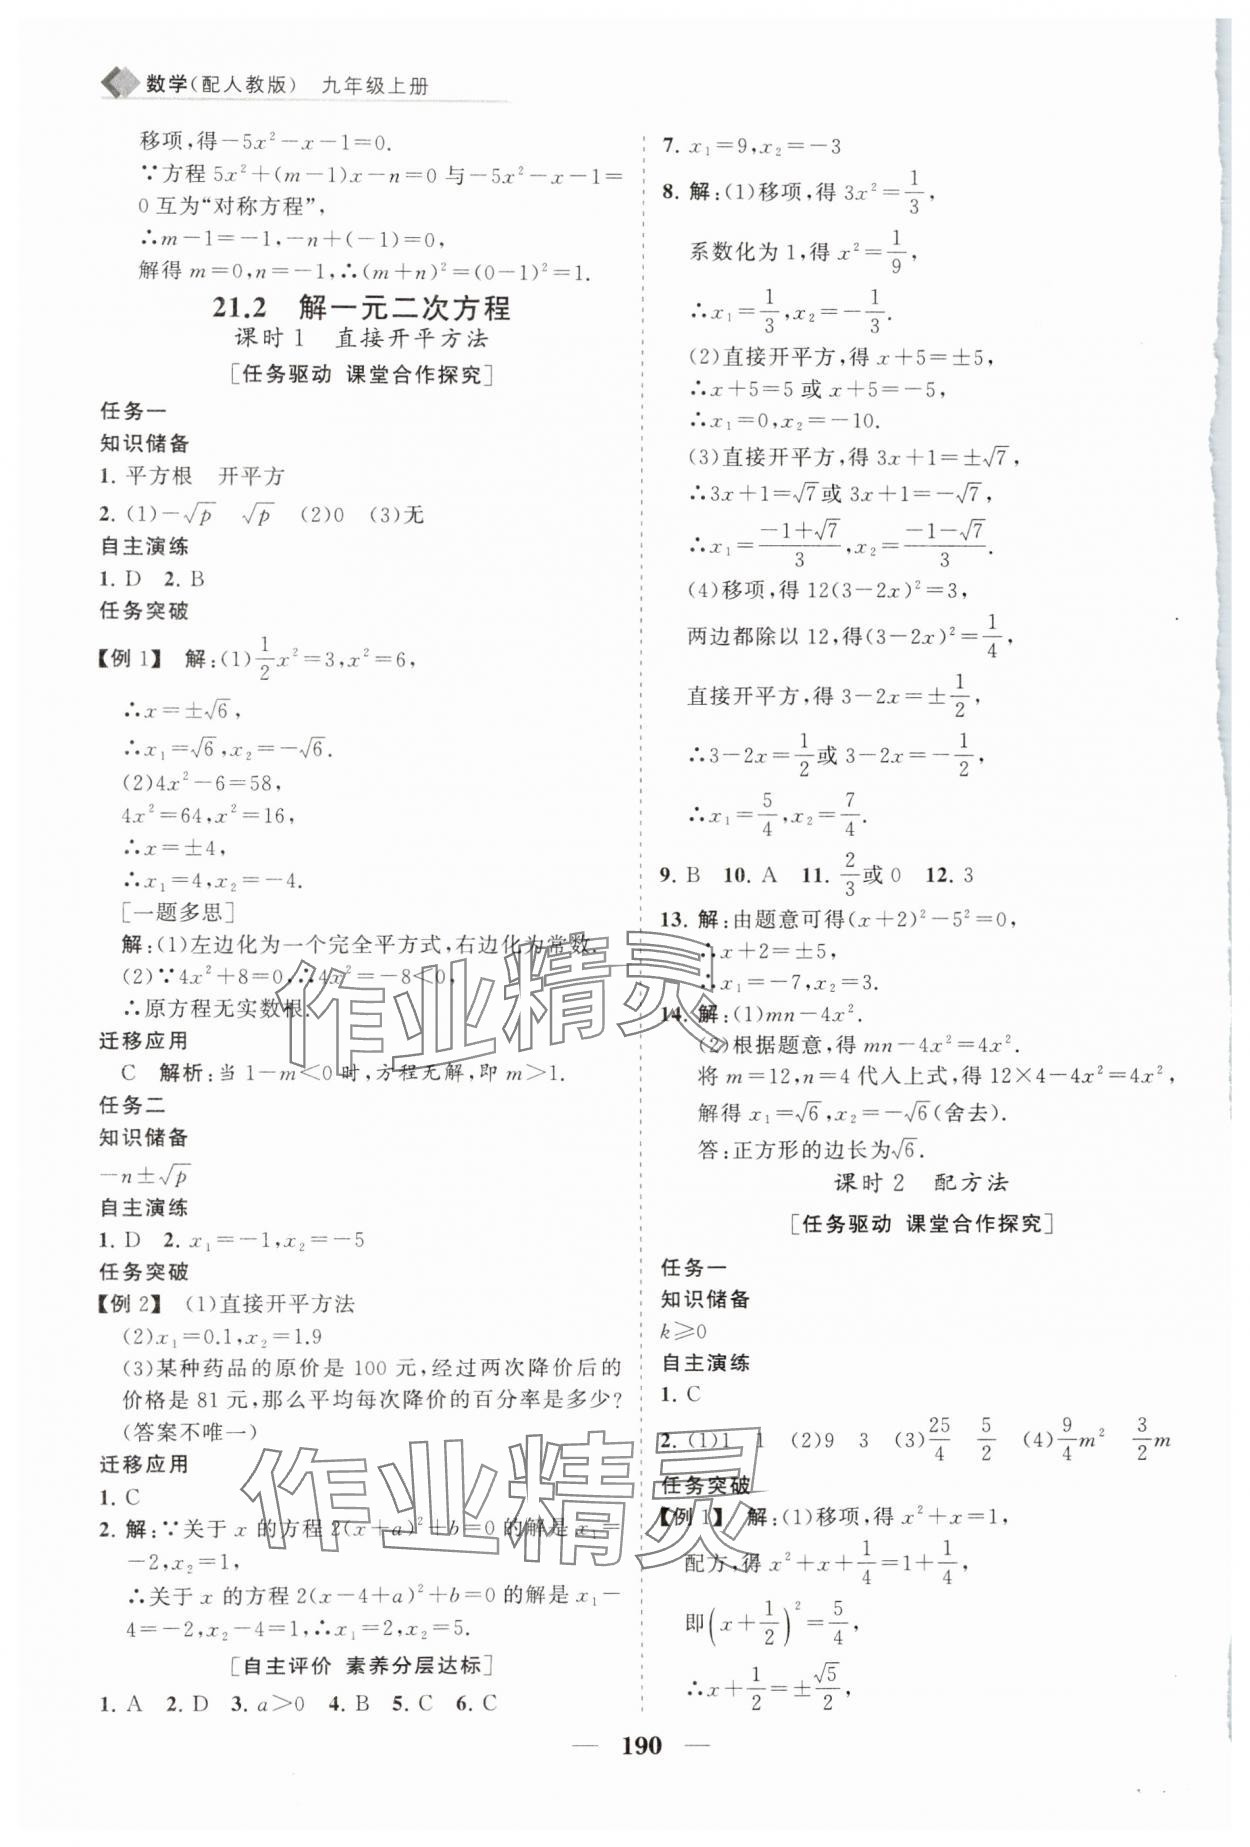 数学(配人教版) 九年级上册
移项,得－5x²－x－1＝0.
∵方程 5x²＋(m－1)x－n＝0 与－5x²－x－1＝
0 互为“对称方程”,
∴m－1＝－1,－n＋(－1)＝0,
解得 m＝0,n＝－1,∴(m＋n)²＝(0－1)²＝1.
21.2 解一元二次方程
课时 1 直接开平方法
[任务驱动 课堂合作探究]
任务一
知识储备
1. 平方根 开平方
2. (1)－√p √p (2)0 (3)无
自主演练
1. D 2. B
任务突破
【例 1】 解:(1)1/2x²＝3,x²＝6,
∴x＝±√6,
∴x₁＝√6,x₂＝－√6.
(2)4x²－6＝58,
4x²＝64,x²＝16,
∴x＝±4,
∴x₁＝4,x₂＝－4.
[一题多思]
解:(1)左边化为一个完全平方式,右边化为常数.
(2)∵4x²＋8＝0,∴4x²＝－8＜0,
∴原方程无实数根.
迁移应用
C 解析:当 1－m＜0 时,方程无解,即 m＞1.
任务二
知识储备
－n±√p
自主演练
1. D 2. x₁＝－1,x₂＝－5
任务突破
【例 2】 (1)直接开平方法
(2)x₁＝0.1,x₂＝1.9
(3)某种药品的原价是 100 元,经过两次降价后的
价格是 81 元,那么平均每次降价的百分率是多少?
(答案不唯一)
迁移应用
1. C
2. 解:∵关于 x 的方程 2(x＋a)²＋b＝0 的解是 x₁＝
－2,x₂＝1,
∴关于 x 的方程 2(x－4＋a)²＋b＝0 的解是 x₁－
4＝－2,x₂－4＝1,∴x₁＝2,x₂＝5.
[自主评价 素养分层达标]
1. A 2. D 3. a＞0 4. B 5. C 6. C
7. x₁＝9,x₂＝－3
8. 解:(1)移项,得 3x²＝1/3,
系数化为 1,得 x²＝1/9,
∴x₁＝1/3,x₂＝－1/3.
(2)直接开平方,得 x＋5＝±5,
∴x＋5＝5 或 x＋5＝－5,
∴x₁＝0,x₂＝－10.
(3)直接开平方,得 3x＋1＝±√7,
∴3x＋1＝√7或 3x＋1＝－√7,
∴x₁＝(－1＋√7)/3,x₂＝(－1－√7)/3.
(4)移项,得 12(3－2x)²＝3,
两边都除以 12,得(3－2x)²＝1/4,
直接开平方,得 3－2x＝±1/2,
∴3－2x＝1/2或 3－2x＝－1/2,
∴x₁＝5/4,x₂＝7/4.
9. B 10. A 11. 2/3或 0 12. 3
13. 解:由题意可得(x＋2)²－5²＝0,
∴x＋2＝±5,
∴x₁＝－7,x₂＝3.
14. 解:(1)mn－4x².
(2)根据题意,得 mn－4x²＝4x².
将 m＝12,n＝4 代入上式,得 12×4－4x²＝4x²,
解得 x₁＝√6,x₂＝－√6(舍去).
答:正方形的边长为√6.
课时 2 配方法
[任务驱动 课堂合作探究]
任务一
知识储备
k≥0
自主演练
1. C
2. (1)1 1 (2)9 3 (3)25/4 5/2 (4)9/4m² 3/2m
任务突破
【例 1】 解:(1)移项,得 x²＋x＝1,
配方,得 x²＋x＋1/4＝1＋1/4,
即(x＋1/2)²＝5/4,
∴x＋1/2＝±√5/2,
— 190 —
作业精灵
作业精灵